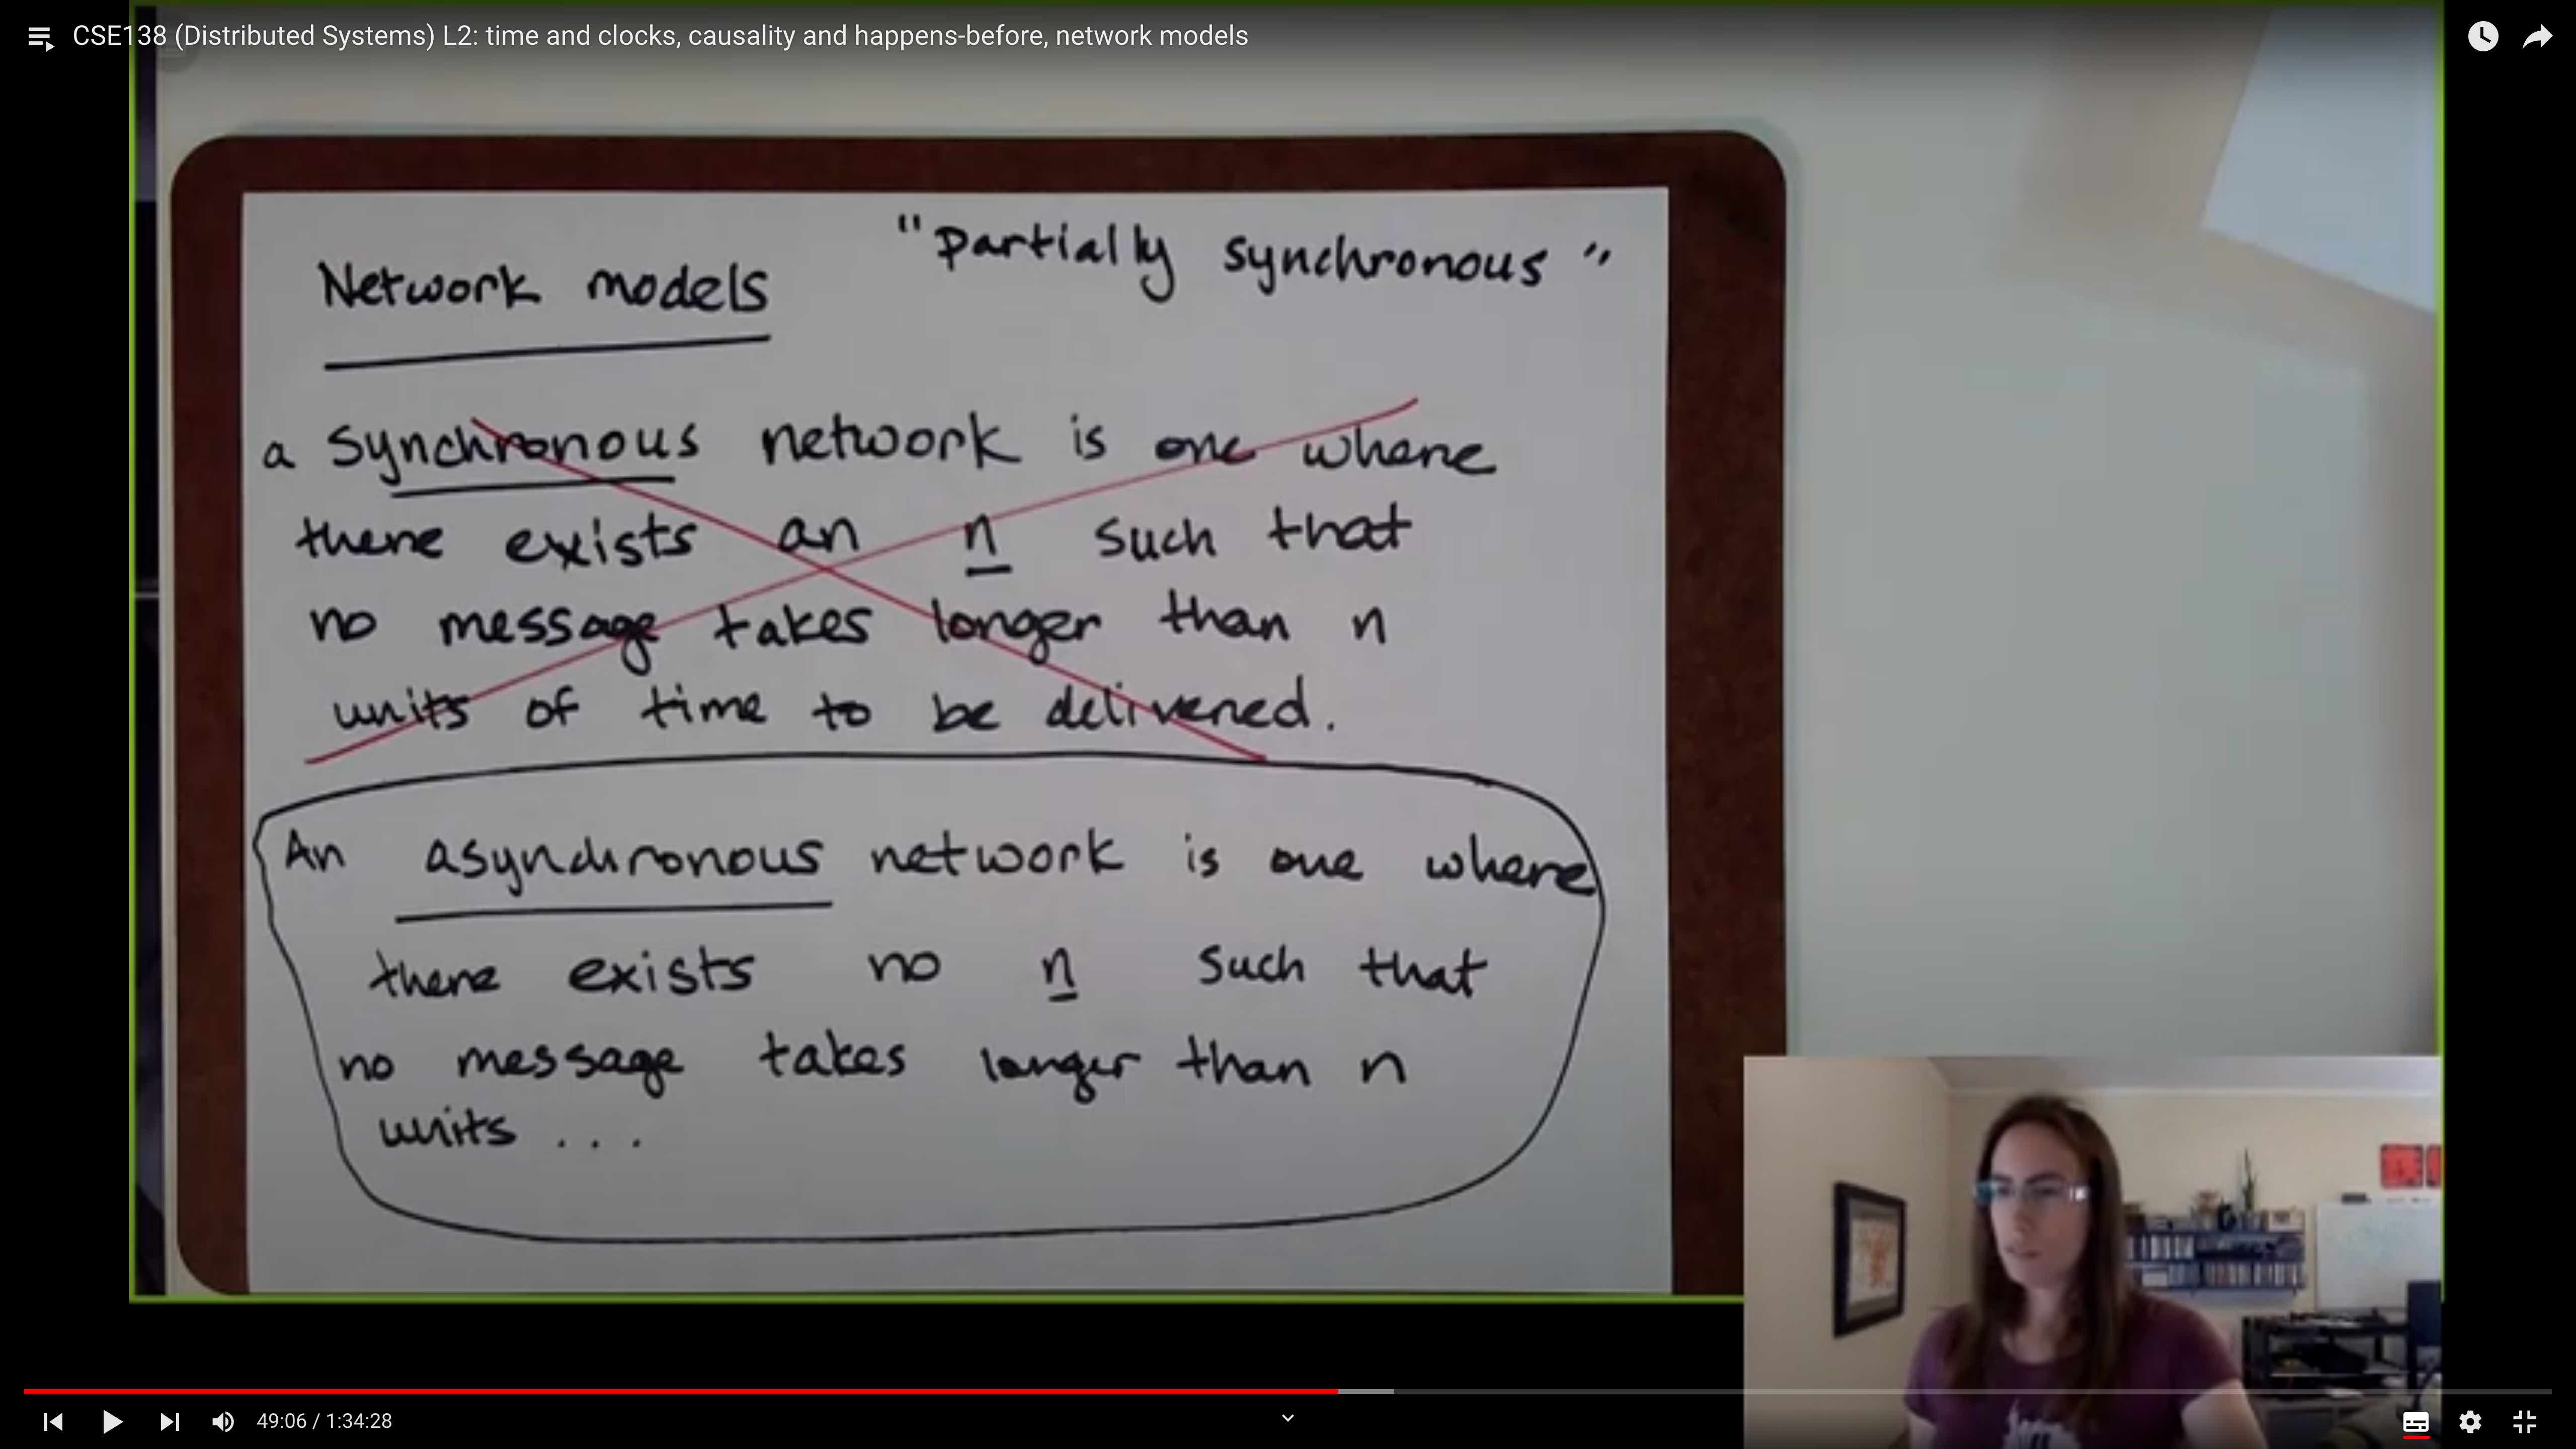 CSE138 (Distributed Systems) L2: time and clocks, causality and happens-before, network models
"partially synchronous"
Network models
a synchronous network is one where
there exists an n such that
no message takes longer than n
units of time to be delivered.
An asynchronous network is one where
there exists no n such that
no message takes longer than n
units ...
49:06 / 1:34:28